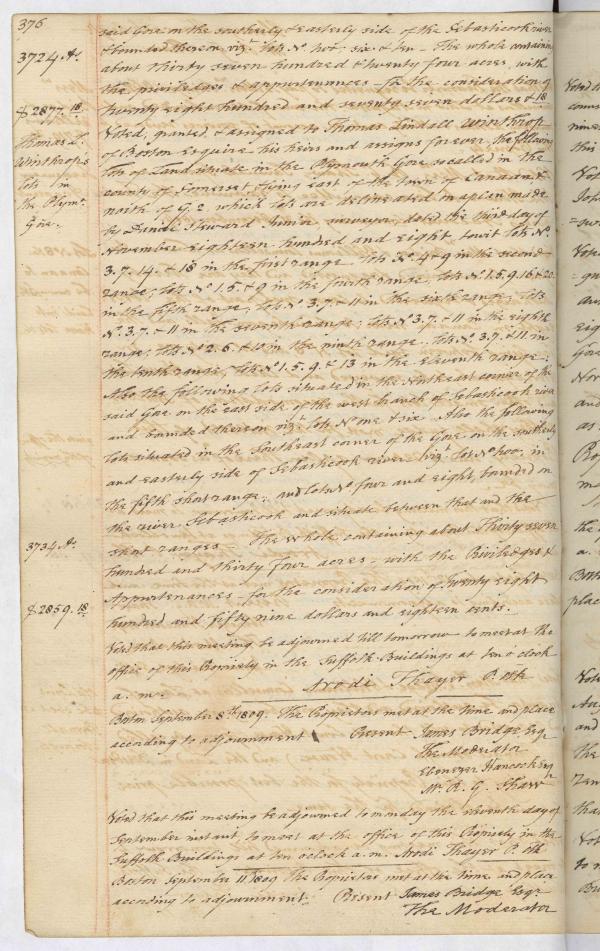 376
said Gore on the southerly & easterly side of the Sebasticook river
& bounded thereon vizt. lots No. two, six & ten - The whole containing
3724 As.
about thirty seven hundred & twenty four acres, with
the priviledges & appurtenances - In the consideration of
$2877.18
twenty eight hundred and seventy seven dollars & 18
Thomas L. Winthrops lots in the Plymo. Gore.
Voted, granted, & assigned to Thomas Lindall Winthrop
of Boston Esquire his heirs and assigns forever, the following
lots of Land situate in the Plymouth Gore so called in the
county of Somerset & lying east of the town of Canaan &
north of G.2 which lots are delineated on a plan made
by Steward Junior surveyor, dated the third day of
November eighteen hundred and eight, towit lots No.
3. 7. 14. & 18 in the first range - lots No. 4 & 9 in the second
range; lots No. 1. 5. & 9 in the fourth range; lots No. 1. 5. 9. 16 & 20
in the fifth range; lots No. 3. 7. & 11 in the sixth range; lots
No. 3. 7. & 11 in the seventh range; lots No. 3. 7. & 11 in the eighth
range; lots No. 2. 6. & 10 in the ninth range - lots No. 3. 7. & 11 in
the tenth range; lots No. 1. 5. 9. & 13 in the eleventh range;
Also the following lots situated in the Northeast corner of the
said Gore on the east side of the west branch of Sebasticook river
and bounded thereon vizt. lots No one & six. Also the following
lots situated in the Southeast corner of the Gore on the southerly
and easterly side of Sebasticook river vizt. lot No two, in
the fifth short range; and lots No four and eight, bounded on
the river Sebasticook and situate between that and the
3734 As.
short ranges - The whole containing about Thirty seven
hundred and thirty four acres - with the Priviledges &
Appurtenances - for the consideration of Twenty eight
$2859.18
hundred and fifty nine dollars and eighteen cents.
Voted that this meeting be adjourned till tomorrow to meet at the
office of this Propriety in the Suffolk Buildings at ten o'clock
a. m.
Arodi Thayer P. Clk
Boston September 8th. 1809. The Proprietors met at the time and place
according to adjournment Present James Bridge Esqr
The Moderator
Ebenezer Hancock Esqr
Mr. R. G. Shaw
Voted that this meeting be adjourned to monday the eleventh day of
September instant, to meet at the office of this Propriety in the
Suffolk Buildings at ten oclock a. m. Arodi Thayer P. Clk
Boston September 11. 1809 The Proprietors met at the time and place
according to adjournment Present James Bridge Esqr
The Moderator